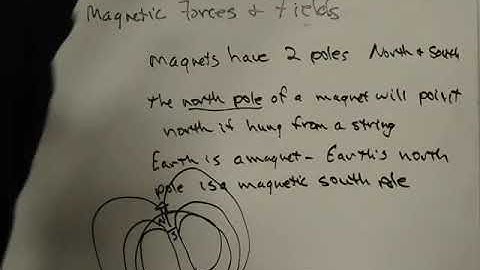 Magnetic Forces & Fields
Magnets have 2 poles North & South
The north pole of a magnet will point
north if hung from a string
Earth is a magnet - Earth's north
pole is a magnetic south pole
N
S